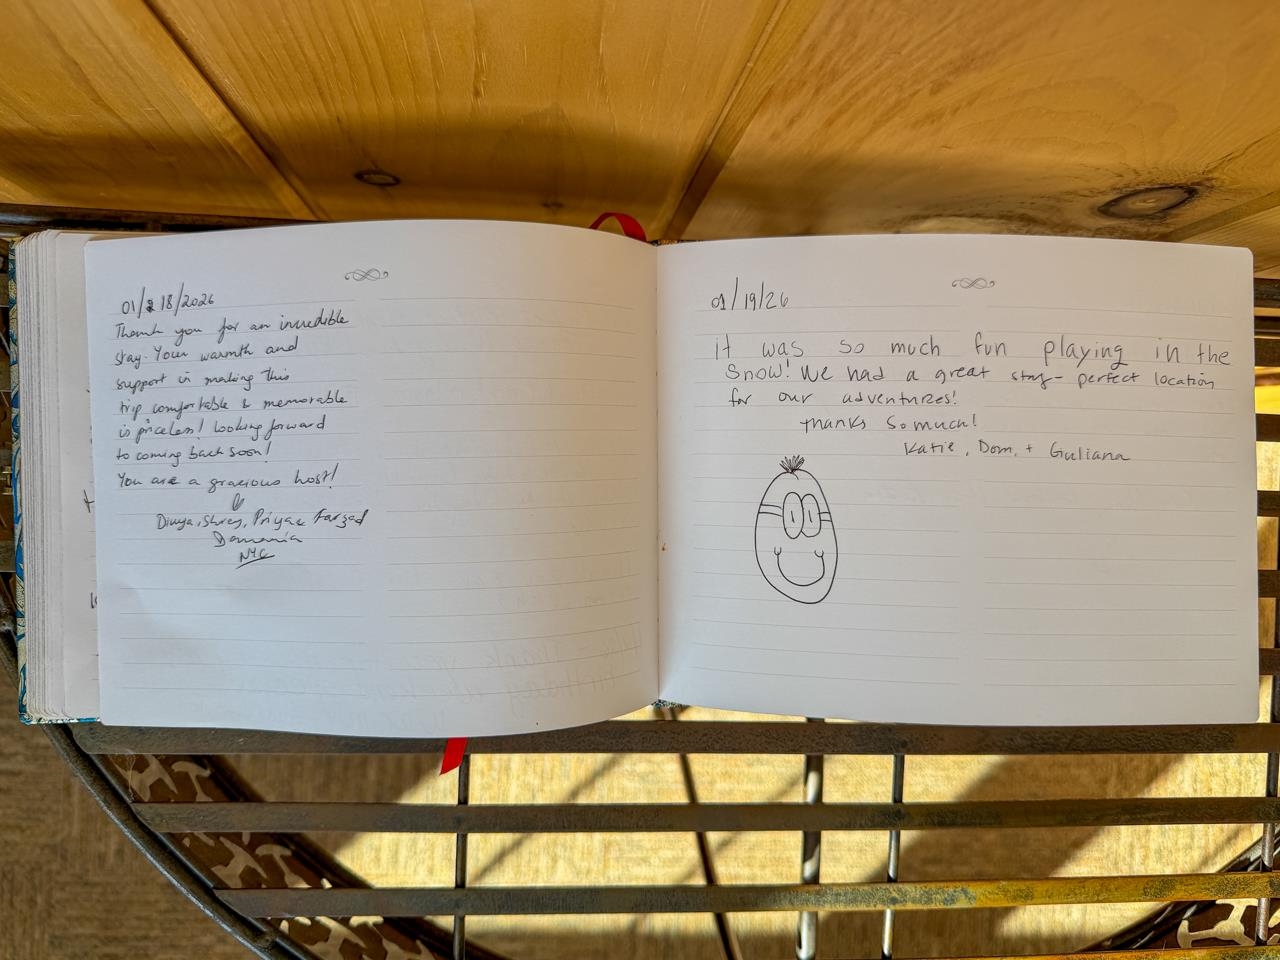 01/18/2026
Thank you for an incredible
stay. Your warmth and
support in making this
trip comfortable & memorable
is priceless! looking forward
to coming back soon!
You are a gracious host!
Divya, Shrey, Priya & Farzad
Damania
NYC
01/19/26
It was so much fun playing in the
snow! We had a great stay - perfect location
for our adventures!
Thanks so much!
Katie, Dom, + Giuliana